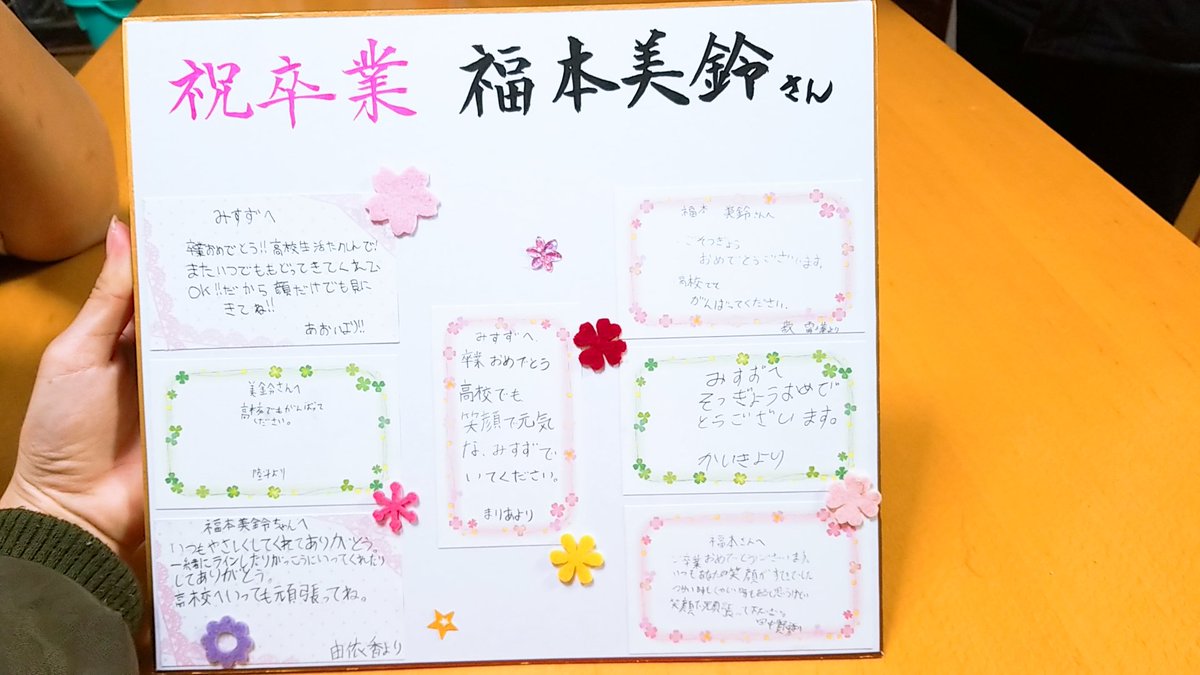 祝卒業 福本美鈴さん
みすずへ
卒業おめでとう!!高校生活たのしんで!
またいつでももどってきてくれて
OK!!だから顔だけでも見に
きてね!!
あおいより!!
美鈴さんへ
高校でもがんばって
ください。
より
福本美鈴ちゃんへ
いつもやさしくしてくれてありがとう。
一緒にラインしたりがっこうにいってくれたり
してありがとう。
高校へいっても頑張ってね。
由依香より
みすずへ
卒業おめでとう
高校でも
笑顔で元気
な、みすずで
いてください。
まりあより
福本 美鈴さんへ
ごそつぎょう
おめでとうございます。
高校でも
がんばってください。
より
みすずへ
そつぎょうおめで
とうございます。
かいきより
福本さんへ
ご卒業おめでとうございます。
いつもあなたの笑顔がすてきでした
笑顔で頑張って